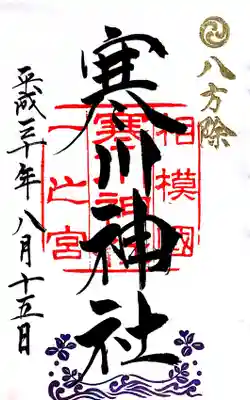 八方除
相模國
寒川神社
寒川神社
一之宮
平成三十年八月十五日